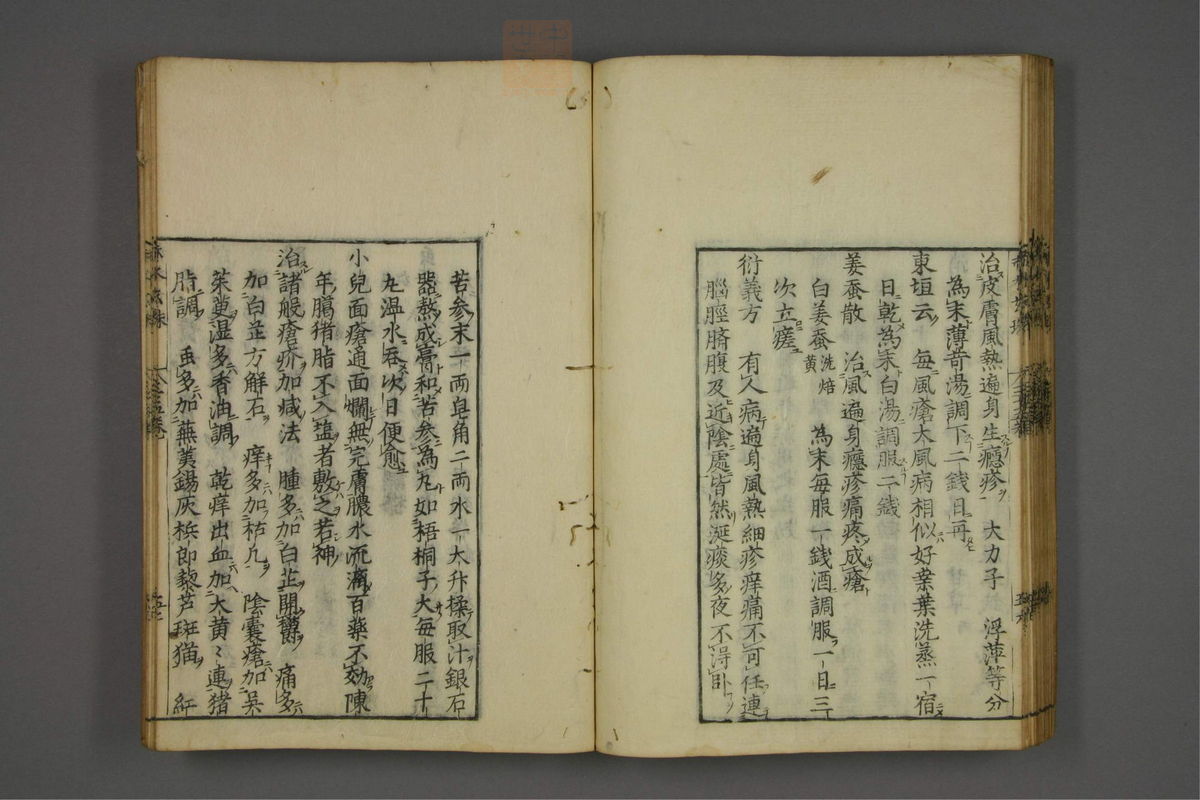 治皮膚風熱遍身生癮疹 大力子 浮萍等分
為末薄苛湯調下二銭日再
東垣云 毎風瘡大風病相似好桒葉洗蒸一宿
日乾為末白湯調服二銭
姜蚕散 治風遍身癮疹痛疼成瘡
白姜蚕 洗焙黄 為末毎服一銭酒調服一日三
次立瘥
衍義方 有人病遍身風熱細疹痒痛不可任連
腦脛臍腹及近陰處皆然涎痰多夜不得卧
苦参末一両皂角二両水一大升揉取汁銀石
器熬成膏和苦参為丸如梧桐子大毎服二十
丸温水吞次日便愈
小兒面瘡通面爛無完膚膿水流漓百薬不効陳
年臈猪脂不入塩者敷之若神
治諸般瘡疥加减法 腫多加白芷開欝 痛多
加白芷方解石 痒多加枯凡 陰囊瘡加吴
茱萸湿多香油調 乾痒出血加大黄〻連猪
脂調 虫多加蕪荑錫灰梹郎藜芦斑猫 紅